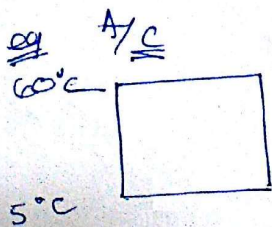 eg A/C
60°C
5°C